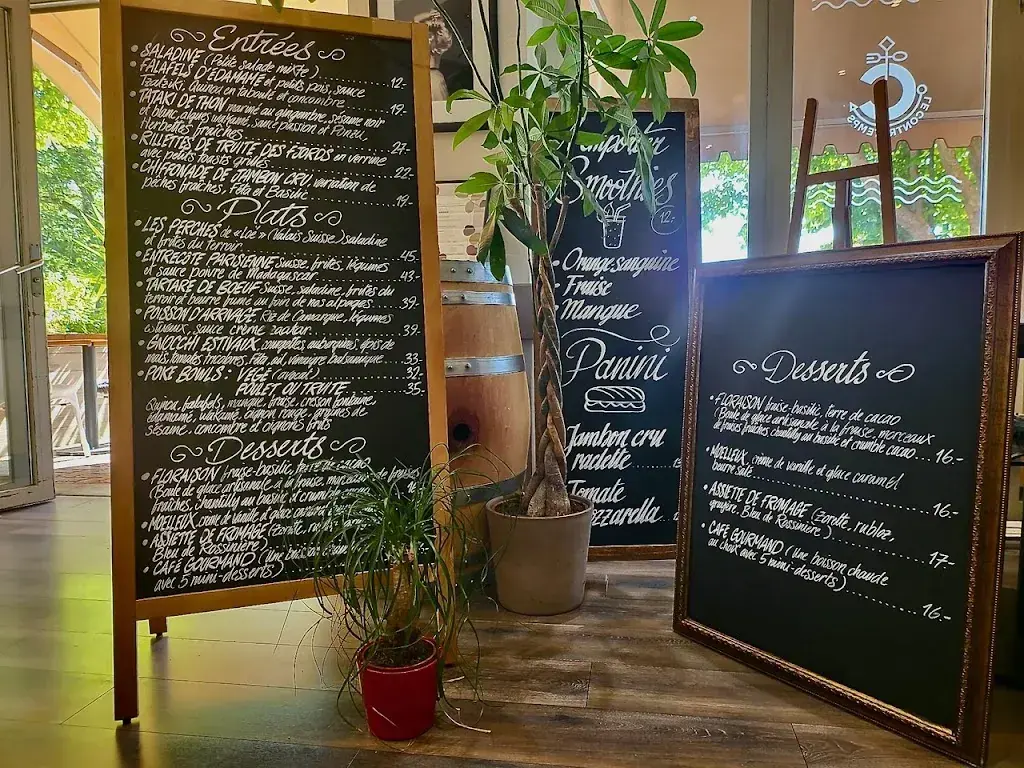 Entrées
• SALADINE (Petite salade mixte) 12.-
• FALAFELS D'ÉDAMAME et petits pois, sauce
Tzatziki, Quinoa en taboulé et concombre 19.-
• TATAKI DE THON mariné au gingembre, sésame noir
et blanc, algues wakamé, sauce passion et Ponzu,
herbettes fraîches 27-
• RILLETTES DE TRUITE DES FJORDS en verrine
avec petits toasts grillés 22.-
• CHIFFONADE DE JAMBON CRU, variation de
pêches fraîches, Féta et Basilic 19.-
Plats
• LES PERCHES de "Loë" (Valais Suisse) saladine
et frites du terroir 45.
• ENTRECÔTE PARISIENNE Suisse, frites, légumes
et sauce poivre de Madagascar 43.-
• TARTARE DE BOEUF Suisse, saladine, frites du
terroir et beurre fumé au foin de nos alpages 39.-
• POISSON D'ARRIVAGE Riz de Camargue, légumes
estivaux, sauce crème 39.
• GNOCCHI ESTIVAUX courgettes, aubergines, épis de
maïs, tomates tricolores, Féta, ail, vinaigre balsamique 33.-
• POKE BOWLS: VÉGÉ (avocat) 32.-
POULET OU TRUITE 35.
Quinoa, falafels, mangue, fraise, cresson fontaine,
édamamé, wakamé, oignon rouge, graines de
sésame, concombre et oignons frits
Desserts
• FLORAISON fraise-basilic, terre de cacao
(Boule de glace artisanale à la fraise, morceaux de fraises
fraîches, chantilly au basilic et crumble
• MOELLEUX, crème de vanille et glace caramel
• ASSIETTE DE FROMAGE (Zorette, rubloz,
Bleu de Rossinière)
• CAFÉ GOURMAND (Une boisson
avec 5 mini-desserts)
emporter
Smoothies
12.-
• Orange sanguine
• Fraise
Mangue
Panini
Jambon cru
raclette
Tomate
mozzarella
LES
CONTRETEMPS
Desserts
• FLORAISON fraise-basilic, terre de cacao
(Boule de glace artisanale à la fraise, morceaux
de fraises fraîches, chantilly au basilic et crumble cacao 16.-
• MOELLEUX, crème de vanille et glace caramel
beurre salé 16.-
• ASSIETTE DE FROMAGE (Zorette, rubloz,
gruyère, Bleu de Rossinière) 17-
• CAFÉ GOURMAND (une boisson chaude
au choix avec 5 mini-desserts) 16.-